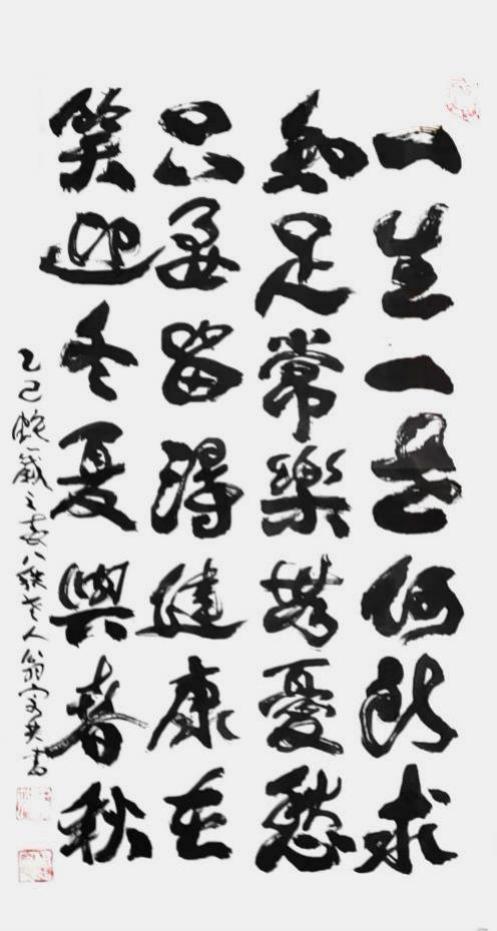 一生一世何所求
知足常樂無憂愁
只要留得健康在
笑迎冬夏與春秋
乙巳蛇歲之春八秩老人翁 書